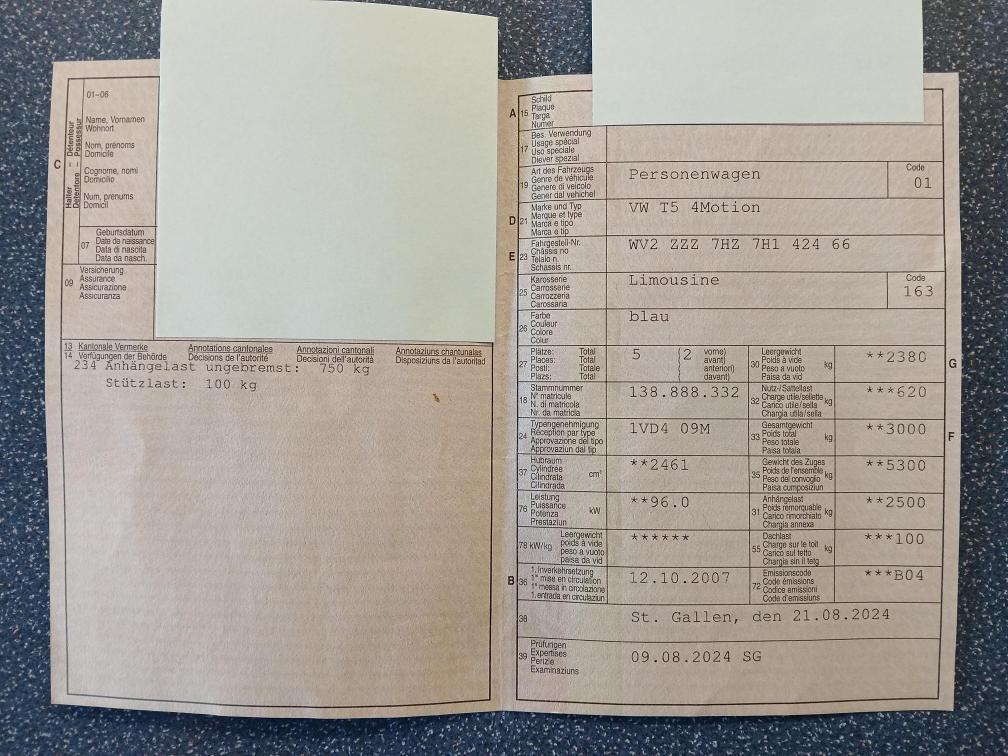 01-06
Name, Vornamen
Wohnort
Nom, prénoms
Domicile
Cognome, nomi
Domicilio
Num, prenums
Domicil
C
Halter – Détenteur
Detentore – Possessur
07
Geburtsdatum
Date de naissance
Data di nascita
Data da nasch.
09
Versicherung
Assurance
Assicurazione
Assicuranza
13 Kantonale Vermerke Annotations cantonales Annotazioni cantonali Annotaziuns chantunalas
14 Verfügungen der Behörde Décisions de l'autorité Decisioni dell'autorità Disposiziuns da l'autoritad
234 Anhängelast ungebremst: 750 kg
Stützlast: 100 kg
A 15
Schild
Plaque
Targa
Numer
17
Bes. Verwendung
Usage spécial
Uso speciale
Diever spezial
19
Art des Fahrzeugs
Genre de véhicule
Genere di veicolo
Gener dal vehichel
Personenwagen
Code
01
D 21
Marke und Typ
Marque et type
Marca e tipo
Marca e tip
VW T5 4Motion
E 23
Fahrgestell-Nr.
Châssis no
Telaio n.
Schassis nr.
WV2 ZZZ 7HZ 7H1 424 66
25
Karosserie
Carrosserie
Carrozzeria
Carossaria
Limousine
Code
163
26
Farbe
Couleur
Colore
Colur
blau
27
Plätze: Total
Places: Total
Posti: Totale
Plazs: Total
5 (2 vorne)
avant)
anteriori)
davant)
30
Leergewicht
Poids à vide
Peso a vuoto
Paisa da vid
kg
**2380
G
18
Stammnummer
N° matricule
N. di matricola
Nr. da matricla
138.888.332
32
Nutz-/Sattellast
Charge utile/sellette
Carico utile/sella
Chargia utila/sella
kg
***620
24
Typengenehmigung
Réception par type
Approvazione del tipo
Approvaziun dal tip
1VD4 09M
33
Gesamtgewicht
Poids total
Peso totale
Paisa totala
kg
**3000
F
37
Hubraum
Cylindrée
Cilindrata
Cilindrada
cm³
**2461
35
Gewicht des Zuges
Poids de l'ensemble
Peso del convoglio
Paisa cumposiziun
kg
**5300
76
Leistung
Puissance
Potenza
Prestaziun
kW
**96.0
31
Anhängelast
Poids remorquable
Carico rimorchiato
Chargia annexa
kg
**2500
78 kW/kg
Leergewicht
poids à vide
peso a vuoto
paisa da vid
******
55
Dachlast
Charge sur le toit
Carico sul tetto
Chargia sin il tetg
kg
***100
B 36
1. Inverkehrsetzung
1re mise en circulation
1a messa in circolazione
1. entrada en circulaziun
12.10.2007
72
Emissionscode
Code émissions
Codice emissioni
Code d'emissiuns
***B04
38
St. Gallen, den 21.08.2024
39
Prüfungen
Expertises
Perizie
Examinaziuns
09.08.2024 SG